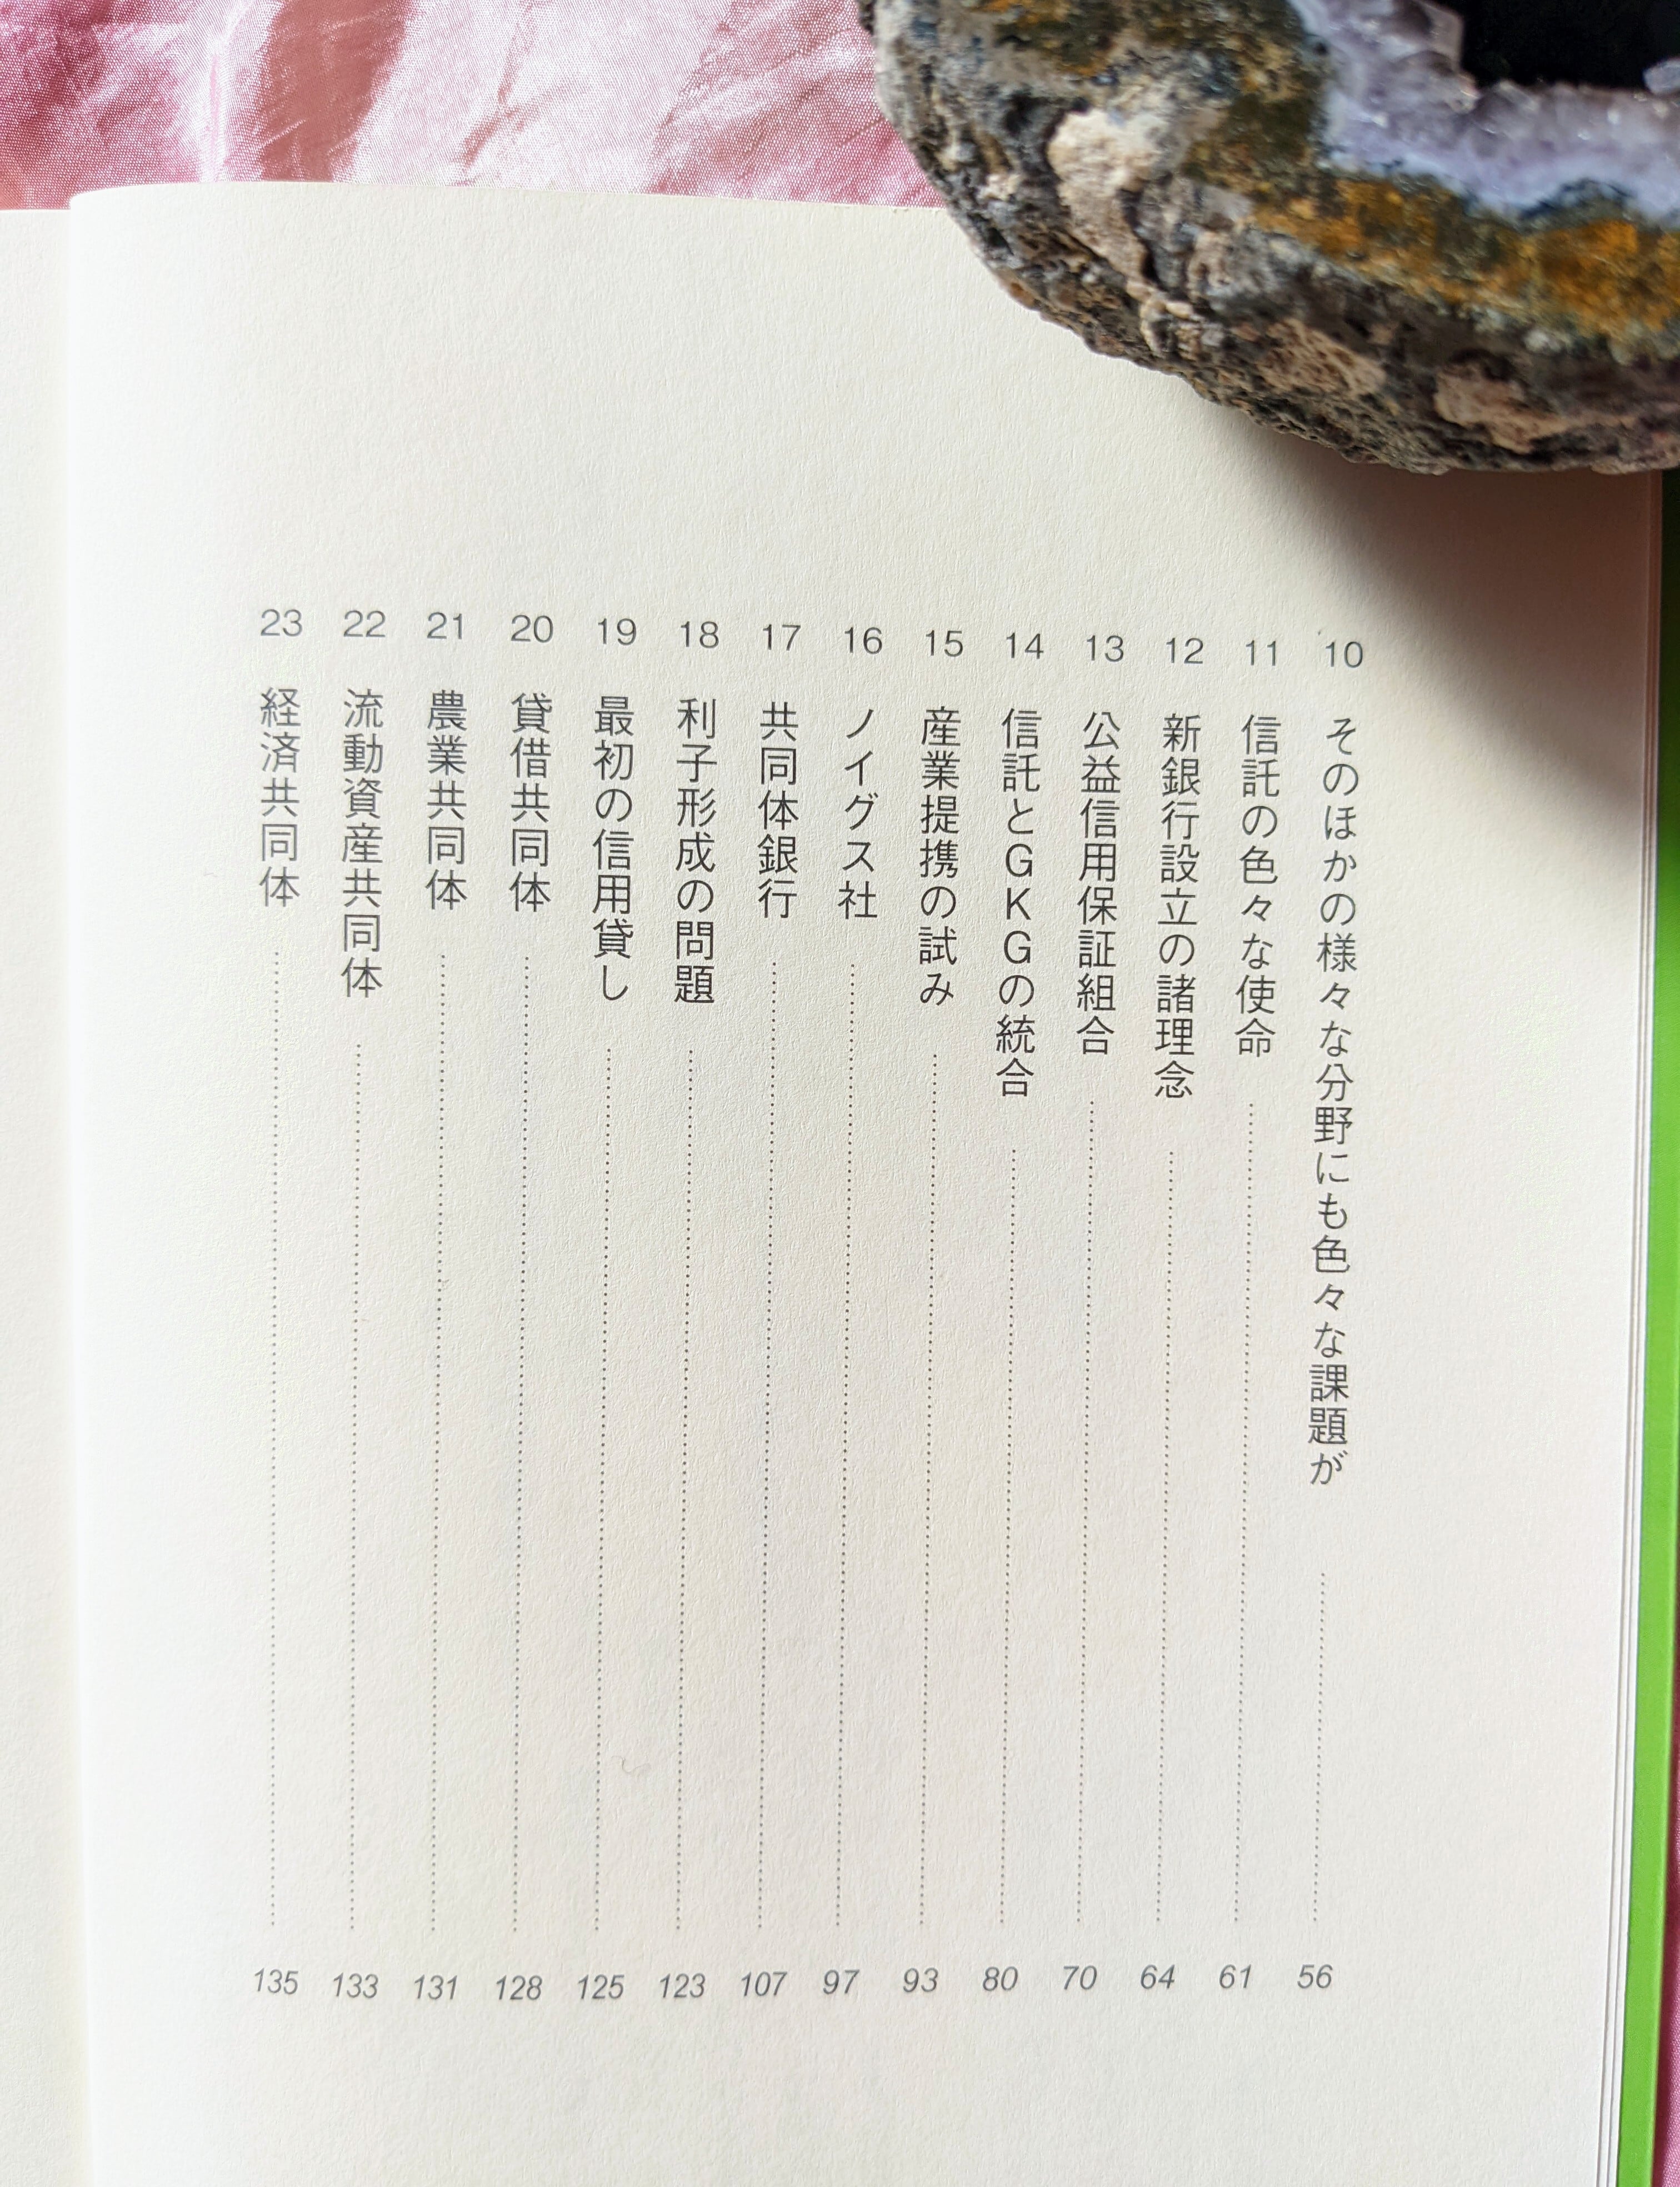 10 そのほかの様々な分野にも色々な課題が 56
11 信託の色々な使命 61
12 新銀行設立の諸理念 64
13 公益信用保証組合 70
14 信託とGKGの統合 80
15 産業提携の試み 93
16 ノイグス社 97
17 共同体銀行 107
18 利子形成の問題 123
19 最初の信用貸し 125
20 貸借共同体 128
21 農業共同体 131
22 流動資産共同体 133
23 経済共同体 135